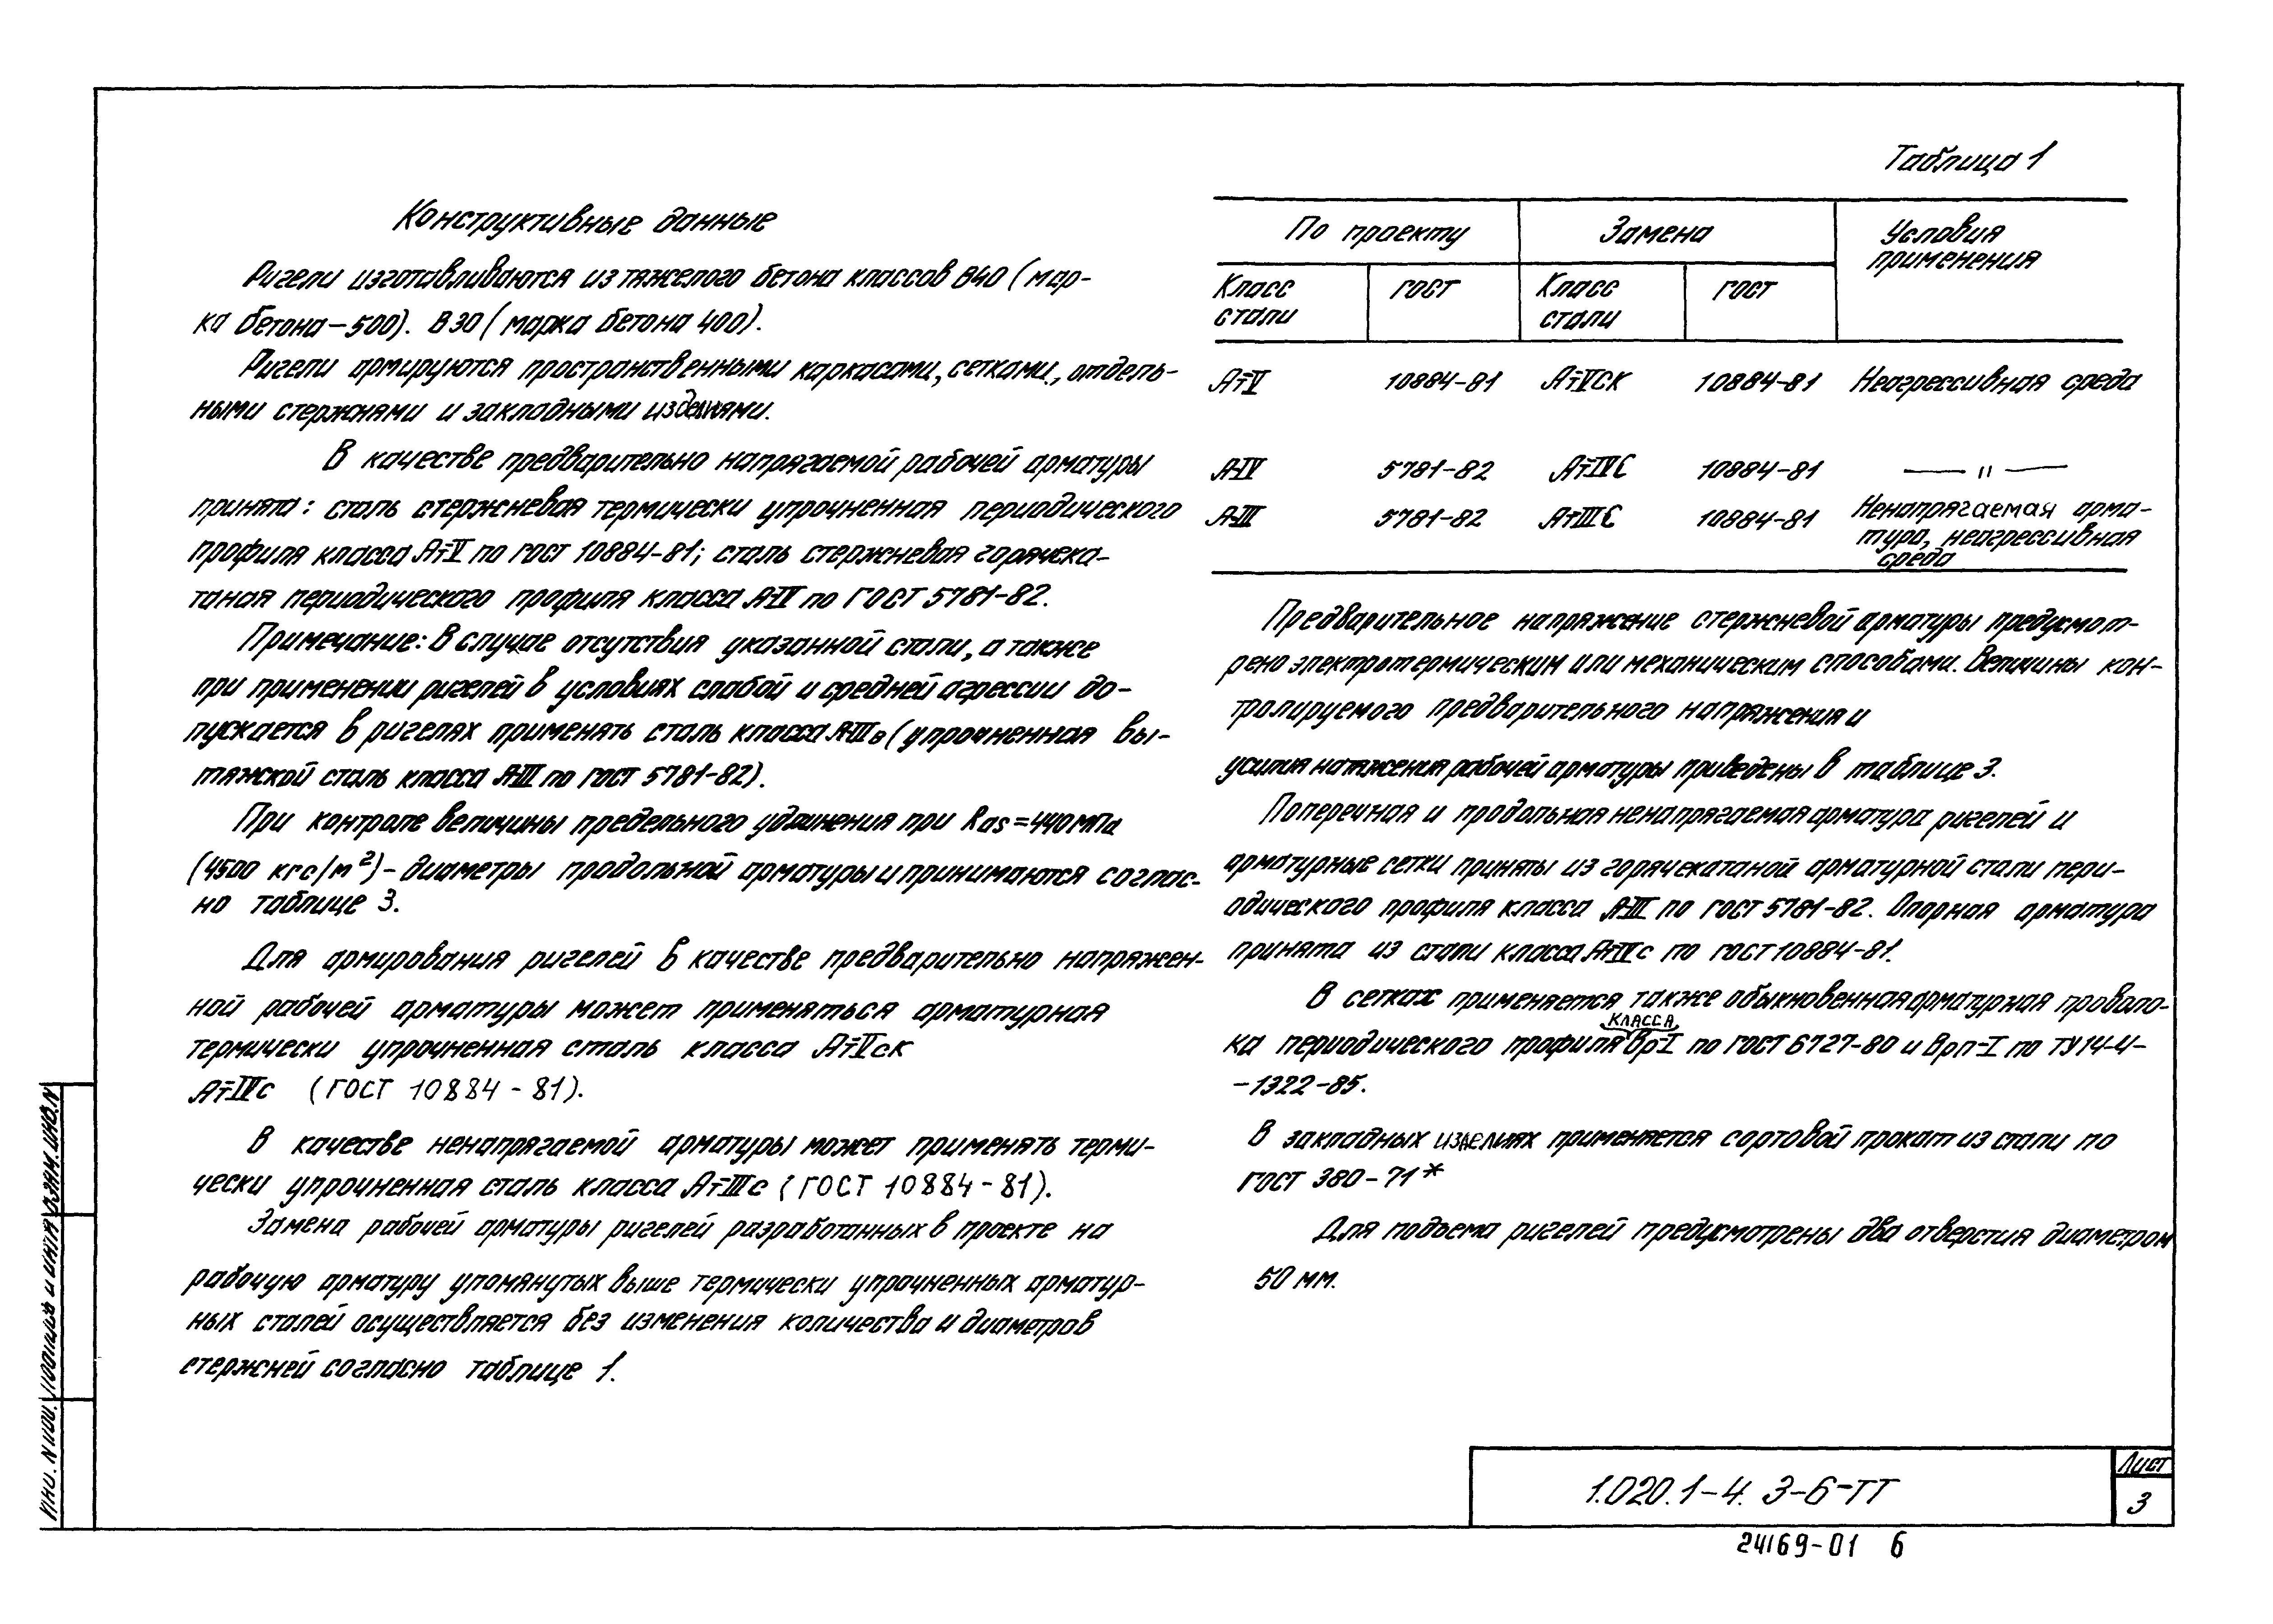 Конструктивные данные
Ригели изготавливаются из тяжелого бетона классов В40 (мар-
ка бетона-500). В30 (марка бетона 400).
Ригели армируются пространственными каркасами, сетками, отдель-
ными стержнями и закладными изделиями.
В качестве предварительно напрягаемой рабочей арматуры
принята: сталь стержневая термически упрочненная периодического
профиля класса Ат-V по ГОСТ 10884-81; сталь стержневая горячека-
таная периодического профиля класса А-IV по ГОСТ 5781-82.
Примечание: В случае отсутствия указанной стали, а также
при применении ригелей в условиях слабой и средней агрессии до-
пускается в ригелях применять сталь класса А-IIIв (упрочненная вы-
тяжкой сталь класса А-III по ГОСТ 5781-82).
При контроле величины предельного удлинения при Ras=440МПа
(4500 кгс/м²)-диаметры продольной арматуры и принимаются соглас-
но таблице 3.
Для армирования ригелей в качестве предварительно напряжен-
ной рабочей арматуры может применяться арматурная
термически упрочненная сталь класса Ат-Vск
Ат-IVс (ГОСТ 10884-81).
В качестве ненапрягаемой арматуры может применять терми-
чески упрочненная сталь класса Ат-IIIс (ГОСТ 10884-81).
Замена рабочей арматуры ригелей разработанных в проекте на
рабочую арматуру упомянутых выше термически упрочненных арматур-
ных сталей осуществляется без изменения количества и диаметров
стержней согласно таблице 1.
Таблица 1
По проекту Замена Условия
применения
Класс
стали ГОСТ Класс
стали ГОСТ
Ат-V 10884-81 Ат-VСК 10884-81 Неагрессивная среда
А-IV 5781-82 Ат-IVС 10884-81 — " —
А-III 5781-82 Ат-IIIС 10884-81 Ненапрягаемая арма-
тура, неагрессивная
среда
Предварительное напряжение стержневой арматуры предусмот-
рено электротермическим или механическим способами. Величины кон-
тролируемого предварительного напряжения и
усилия натяжения рабочей арматуры приведены в таблице 3.
Поперечная и продольная ненапрягаемая арматура ригелей и
арматурные сетки приняты из горячекатаной арматурной стали пери-
одического профиля класса А-III по ГОСТ 5781-82. Опорная арматура
принята из стали класса Ат-IVс по ГОСТ 10884-81.
В сетках применяется также обыкновенная арматурная проволо-
ка периодического профиля класса Вр-I по ГОСТ 6727-80 и Врп-I по ТУ14-4-
-1322-85.
В закладных изделиях применяется сортовой прокат из стали по
ГОСТ 380-71*
Для подъема ригелей предусмотрены два отверстия диаметром
50 мм.
Инв. N подл. Подпись и дата Взам. инв. N
1.020.1-4. 3-6-ТТ
Лист
3
24169-01 6